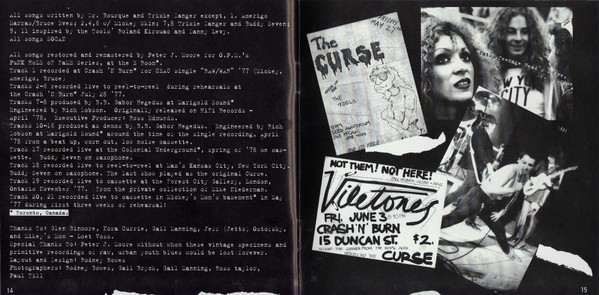 All songs written by Dr. Bourque and Trixie Danger except, 1. Amerigo
Marras/Bruce Eves; 2,4,6 w/ Mickey Skin; 7,8 Trixie Danger and Buddy Seven;
9, 11 inspired by the Tools' Roland Kirouac and Danny Levy.
All songs SOCAN
All songs restored and remastered by Peter J. Moore for O.P.M.'s
Punk Hole of Fame Series, at the E Room*.
Track 1 recorded at Crash 'N' Burn* for CEAC single "Raw/War" '77 (Mickey,
Amerigo, Bruce.
Tracks 2-6 recorded live to reel-to-reel during rehearsals at
the Crash 'N' Burn* July 28 '77.
Tracks 7-8 produced by B.B. Gabor Hegedus at Marigold Sound*
Engineered by Rich Dobson. Originally released on Hi-Fi Records -
April '78. Executive Producer: Ross Edmunds.
Tracks 10-16 produced as demos by B.B. Gabor Hegedus. Engineered by Rich
Dobson at Marigold Sound* around the time of the single recording, April
'78 from a beat up, worn out, low noise cassette.
Track 17 recorded live at the Colonial Underground*, spring of '78 on cas-
sette. Buddy Seven on saxophone.
Track 18 recorded live to reel-to-reel at Max's Kansas City, New York City.
Buddy Seven on saxophone. The last show played as the original Curse.
Track 19 recorded live to cassette at the Forest City Gallery, London,
Ontario November '77. From the private collection of Mike Niederman.
Track 20, 21 recorded live to cassette in Mickey's Mom's basement* in May
'77 during first three weeks of rehearsal!
* Toronto, Canada.
Thanks to: Glen Binmore, Nora Currie, Gail Manning, Jeff (Jetts) Ostofsky,
and Mike's Mom - Lost Voss.
Special Thanks to: Peter J. Moore without whom these vintage specimens and
primitive recordings of raw, urban youth blues would be lost forever.
Layout and Design: Rodney Bowes
Photographers: Rodney Bowes, Gail Bryck, Gail Manning, Ross Taylor,
Paul Till
14
FRIDAY
MAY 27
The
CURSE
THE
TOOLS
YORK
CITY
NOT THEM! NOT HERE!
Viletones
FRI. JUNE 3
CRASH 'N' BURN
15 DUNCAN ST. $2.
CURSE
15